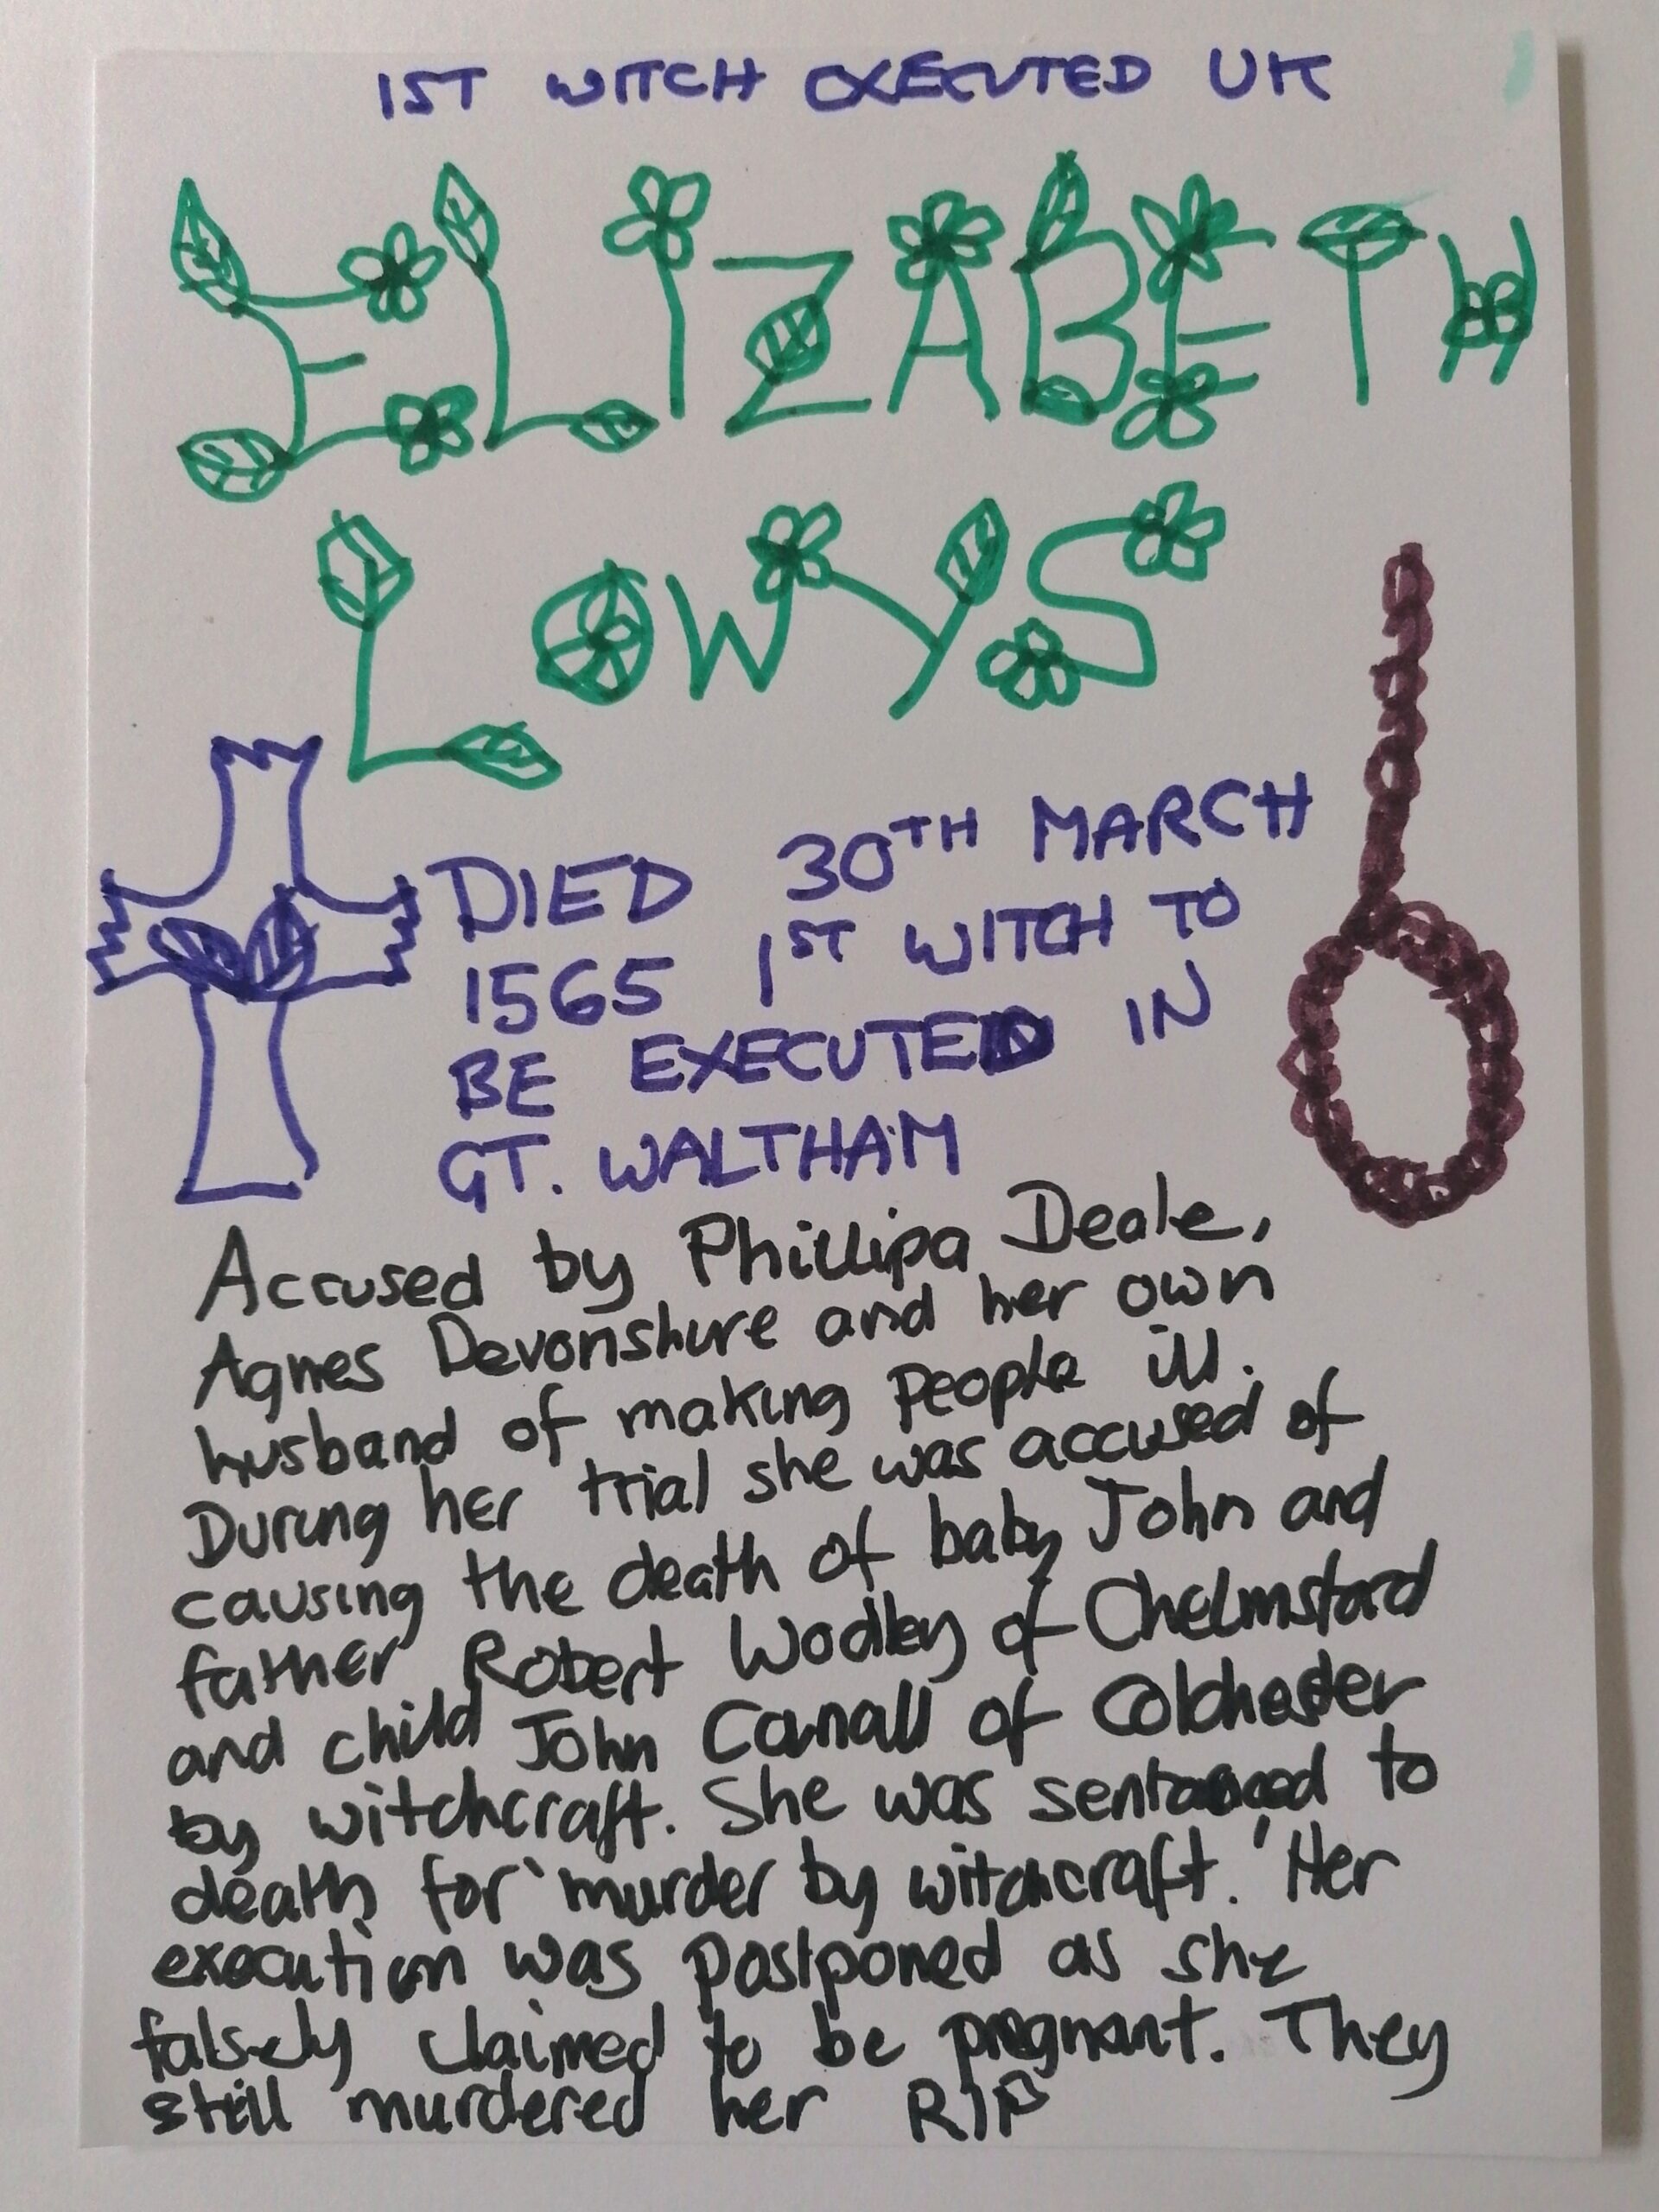 1ST WITCH EXECUTED UK
ELIZABETH
LOWYS
DIED 30TH MARCH
1565 1ST WITCH TO
BE EXECUTED IN
GT. WALTHAM
Accused by Phillipa Deale,
Agnes Devonshire and her own
husband of making people ill.
During her trial she was accused of
causing the death of baby John and
father Robert Wodley of Chelmsford
and child John Canall of Colchester
by witchcraft. She was sentanced to
death for 'murder by witchcraft.' Her
execution was postponed as she
falsely claimed to be pregnant. They
still murdered her RIP